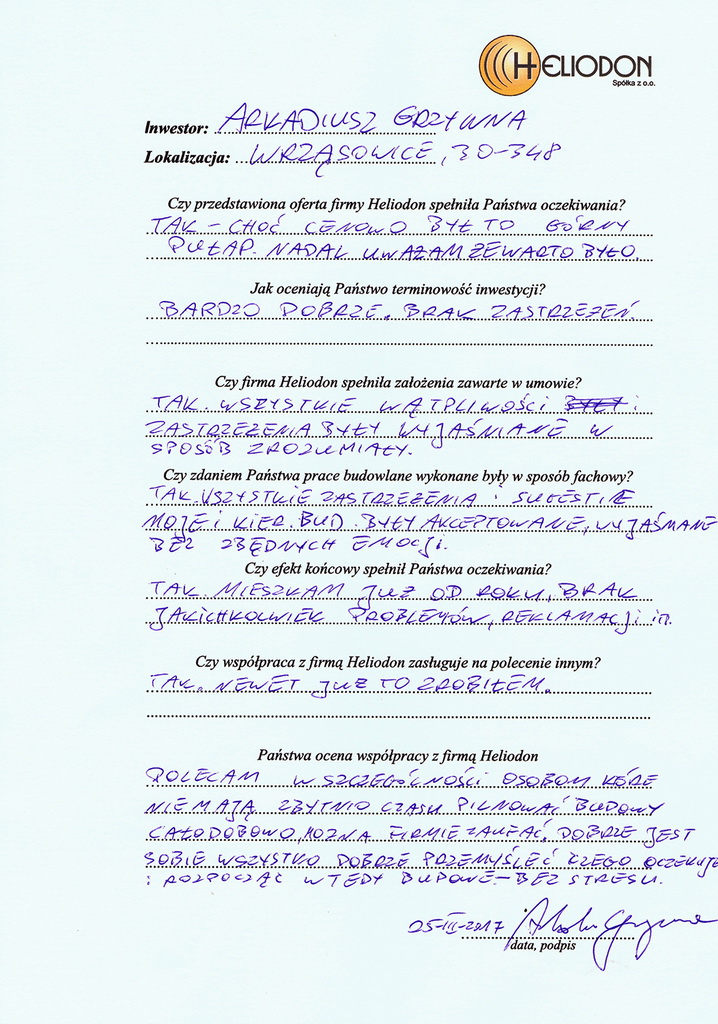 HELIODON
Spółka z o.o.
Inwestor: ARKADIUSZ GRZYWNA
Lokalizacja: WRZĄSOWICE, 30-348
Czy przedstawiona oferta firmy Heliodon spełniła Państwa oczekiwania?
TAK - CHOĆ CENOWO BYŁ TO GÓRNY
PUŁAP. NADAL UWAŻAM ŻE WARTO BYŁO.
Jak oceniają Państwo terminowość inwestycji?
BARDZO DOBRZE. BRAK ZASTRZEŻEŃ.
Czy firma Heliodon spełniła założenia zawarte w umowie?
TAK. WSZYSTKIE WĄTPLIWOŚCI BYŁY i
ZASTRZEŻENIA BYŁY WYJAŚNIANE W
SPOSÓB ZROZUMIAŁY.
Czy zdaniem Państwa prace budowlane wykonane były w sposób fachowy?
TAK. WSZYSTKIE ZASTRZEŻENIA i SUGESTIE
MOJE i KIER. BUD. BYŁY AKCEPTOWANE, WYJAŚNIANE
BEZ ZBĘDNYCH EMOCJI.
Czy efekt końcowy spełnił Państwa oczekiwania?
TAK. MIESZKAM JUŻ OD ROKU, BRAK
JAKICHKOLWIEK PROBLEMÓW, REKLAMACJI ITP.
Czy współpraca z firmą Heliodon zasługuje na polecenie innym?
TAK. NEWET JUŻ TO ZROBIŁEM.
Państwa ocena współpracy z firmą Heliodon
POLECAM W SZCZEGÓLNOŚCI OSOBOM KÓRE
NIE MAJĄ ZBYTNIO CZASU PILNOWAĆ BUDOWY
CAŁODOBOWO, MOŻNA FIRMIE ZAUFAĆ. DOBRZE JEST
SOBIE WSZYSTKO DOBRZE PRZEMYŚLEĆ CZEGO OCZEKUJE
i ROZPOCZĄĆ WTEDY BUDOWĘ - BEZ STRESU.
25-III-2017
data, podpis